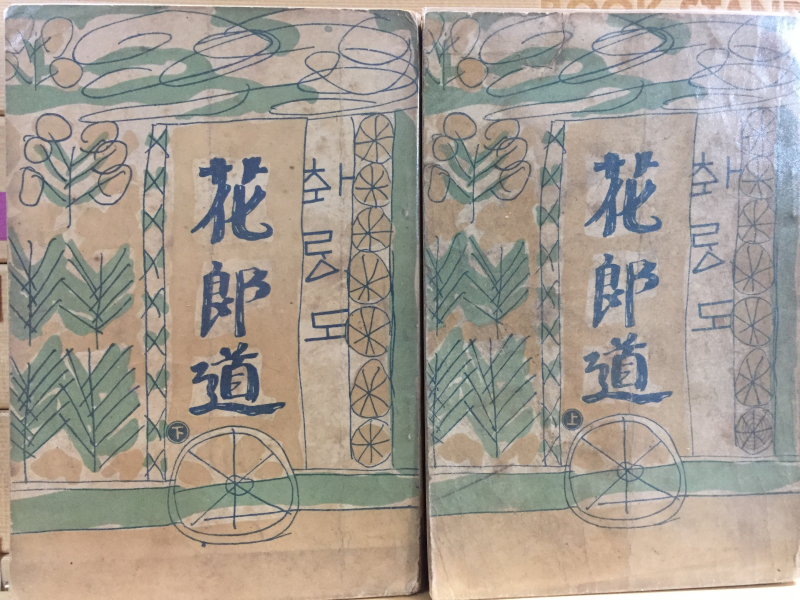 花郎道
화랑도
下
花郎道
화랑도
上
BOOK STAND